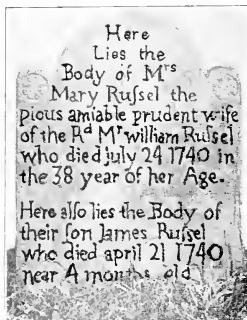 Here
Lies the
Body of Mrs
Mary Ruſsel the
pious amiable prudent wife
of the Rd Mr william Ruſsel
who died july 24 1740 in
the 38 year of her Age.
Here also lies the Body of
their ſon James Ruſsel
who died april 21 1740
near 4 months old